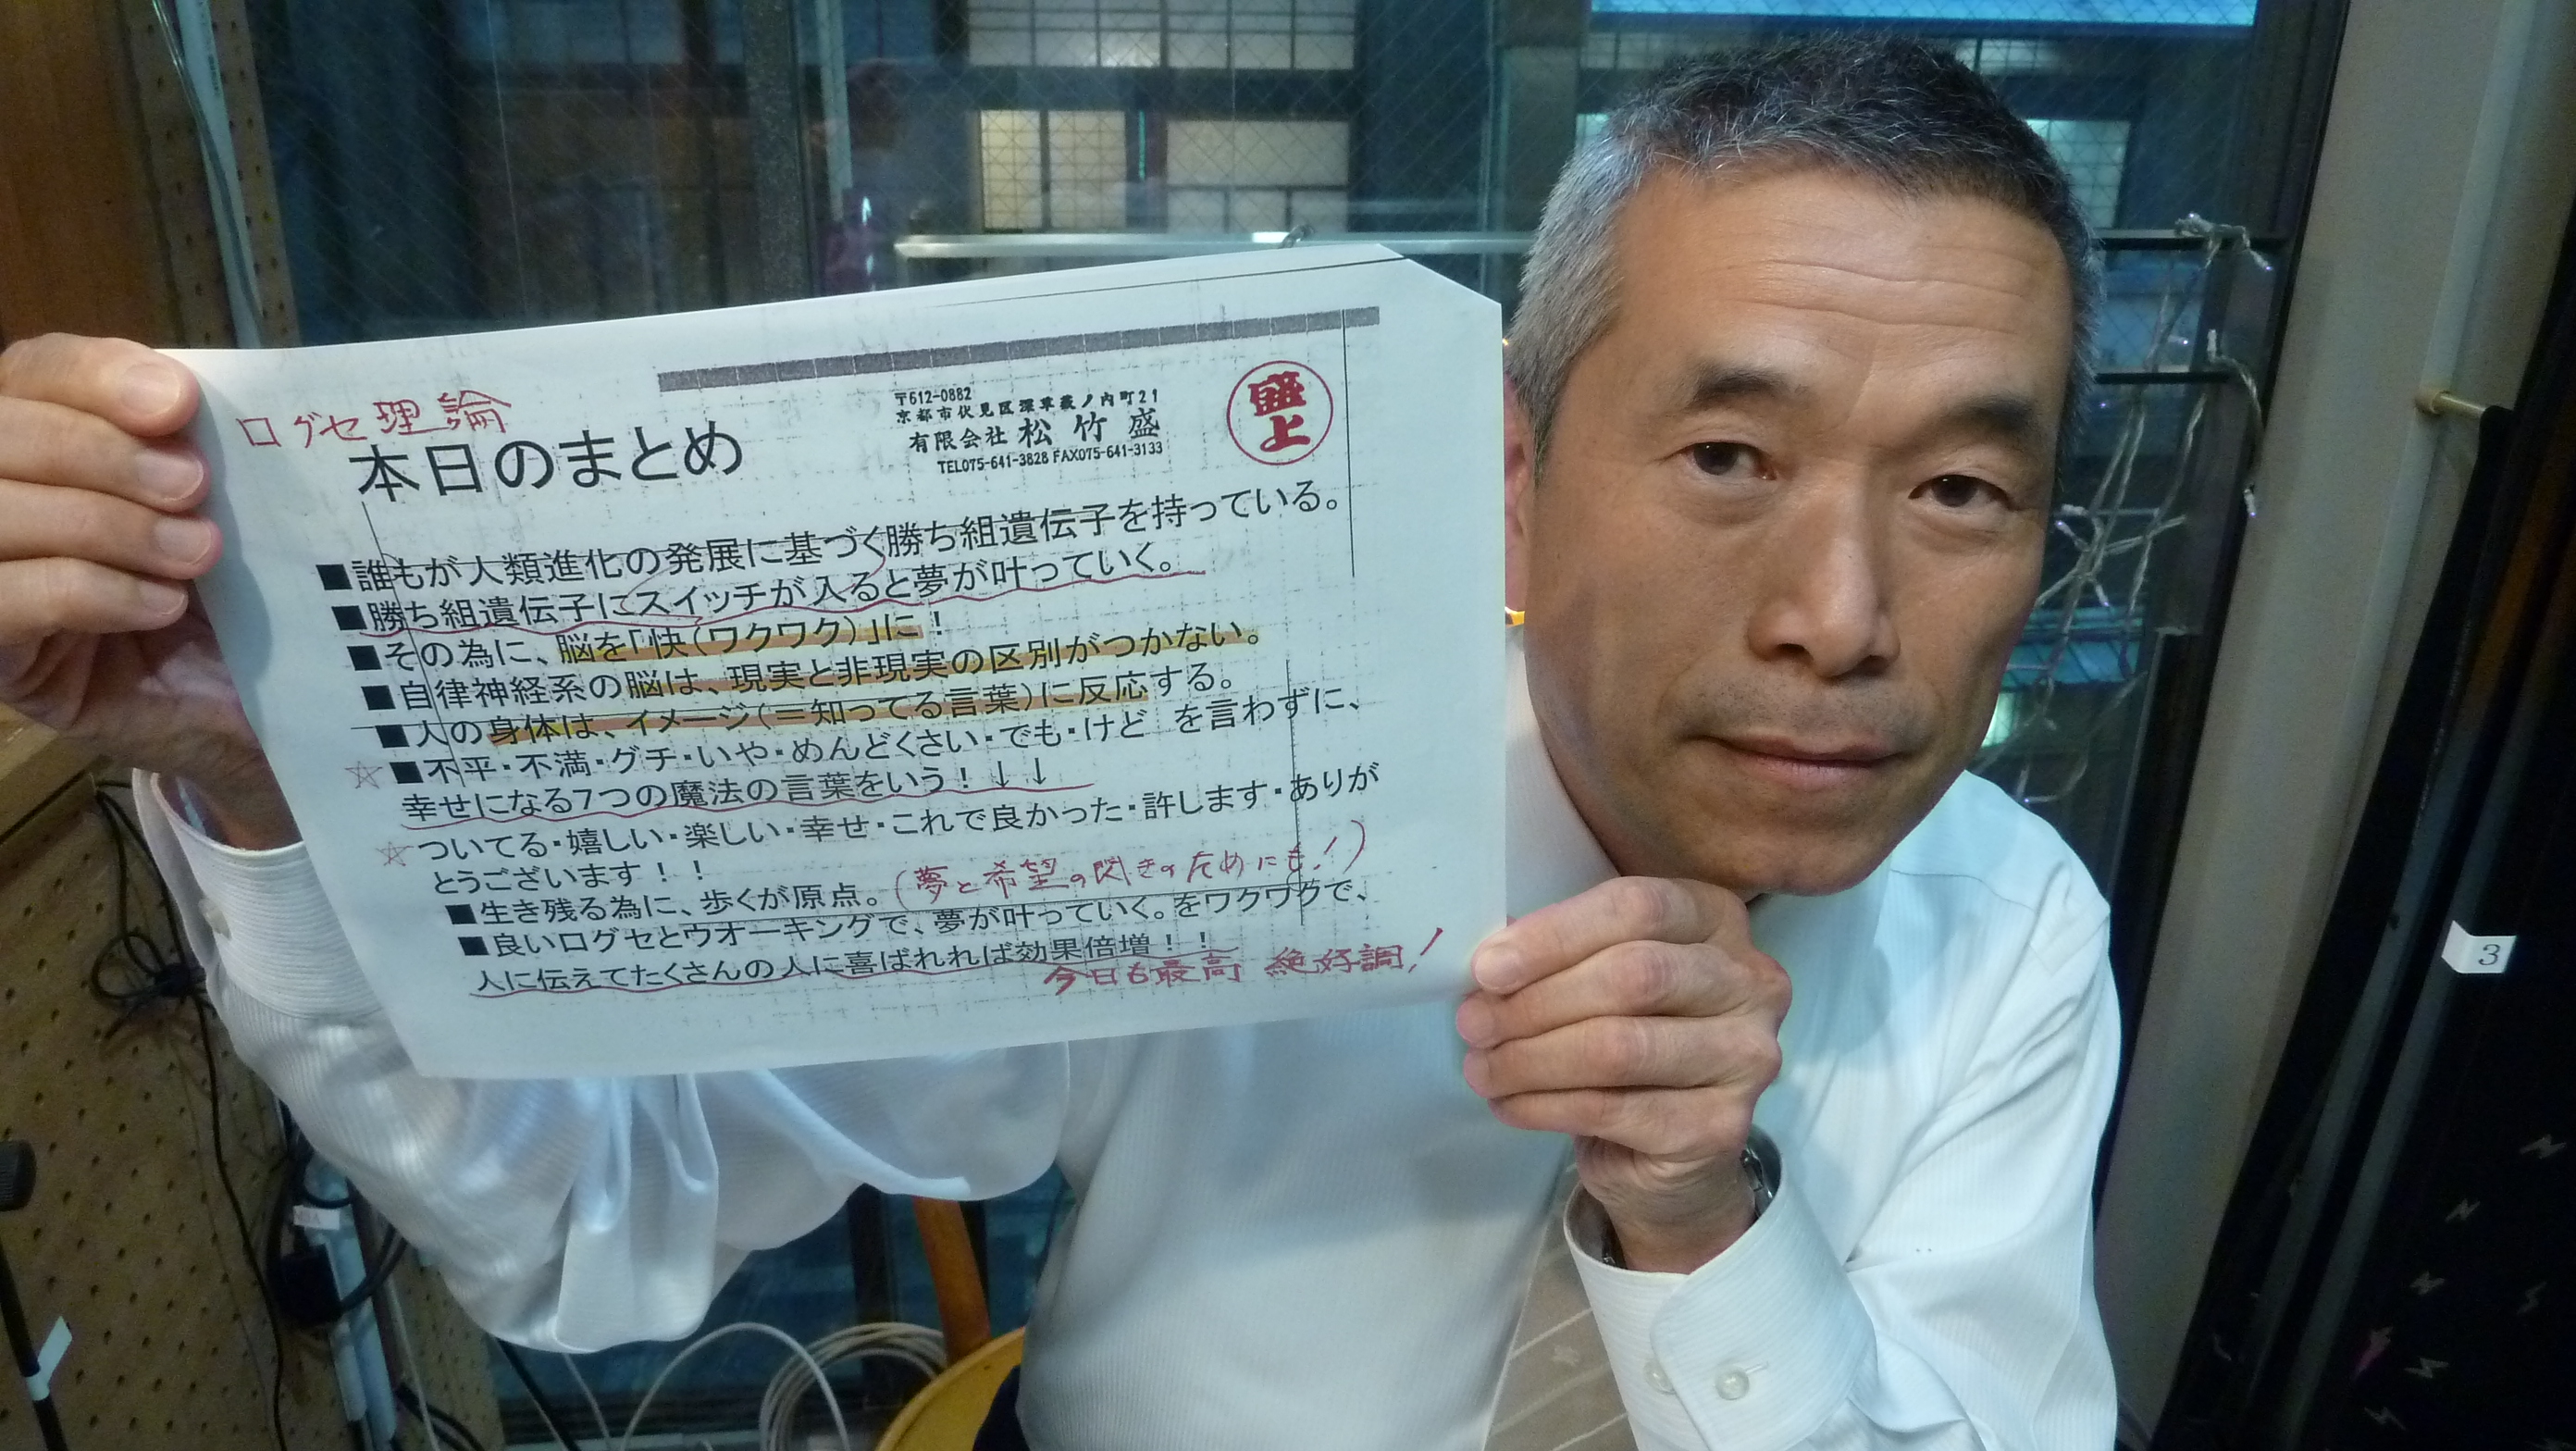 口グセ理論
本日のまとめ
〒612-0882
京都市伏見区深草薮ノ内町21
有限会社 松竹盛
TEL075-641-3828 FAX075-641-3133
盛上
■誰もが人類進化の発展に基づく勝ち組遺伝子を持っている。
■勝ち組遺伝子にスイッチが入ると夢が叶っていく。
■その為に、脳を「快(ワクワク)」に!
■自律神経系の脳は、現実と非現実の区別がつかない。
■人の身体は、イメージ(=知ってる言葉)に反応する。
☆■不平・不満・グチ・いや・めんどくさい・でも・けど を言わずに、
幸せになる7つの魔法の言葉をいう!↓↓
☆ついてる・嬉しい・楽しい・幸せ・これで良かった・許します・ありが
とうございます!!
■生き残る為に、歩くが原点。(夢と希望の閃きのためにも!)
■良い口グセとウオーキングで、夢が叶っていく。をワクワクで、
人に伝えてたくさんの人に喜ばれれば効果倍増!!
今日も最高 絶好調!
3